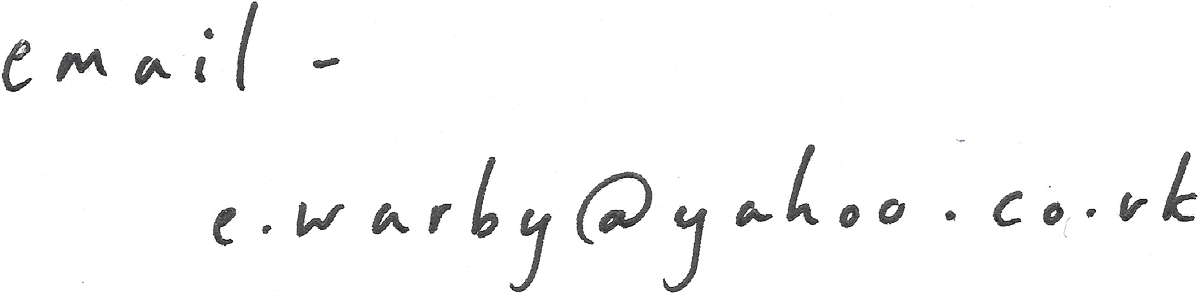 email -
e.warby@yahoo.co.uk